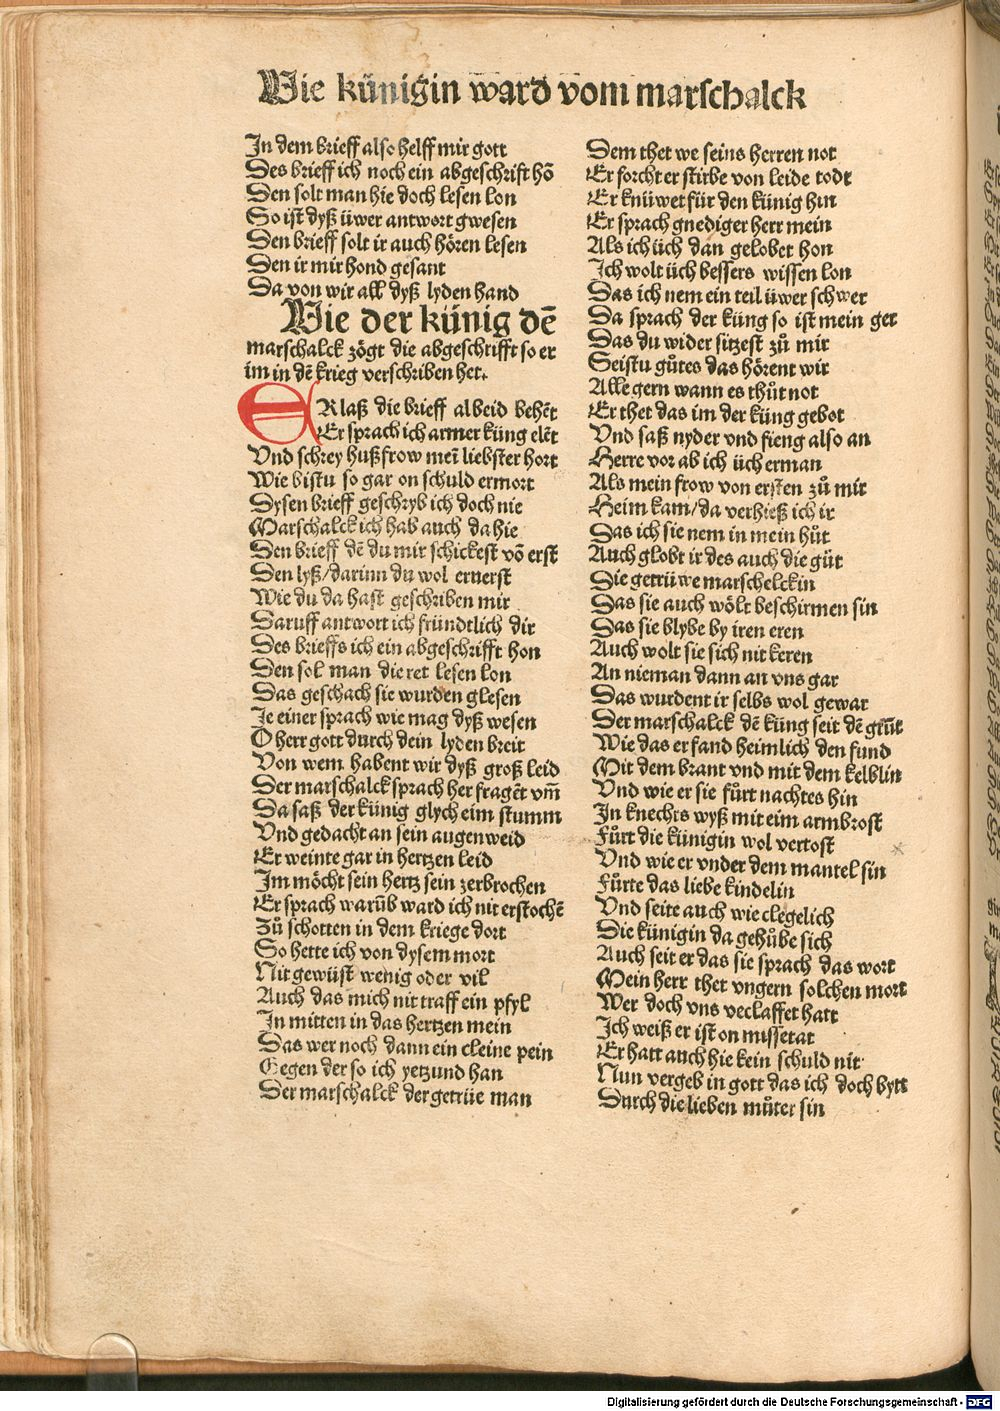 Wie künigin ward vom marschalck
In dem brieff also helff mir gott
Des brieff ich noch ein abgeschrift hō
Den solt man hie doch lesen lon
So ist dyß üwer antwort gwesen
Den brieff solt ir auch hören lesen
Den ir mir hond gesant
Da von wir all dyß lyden hand
Wie der künig dē
marschalck zögt die abgeschrifft so er
im in dē krieg verschriben het.
ERlaß die brieff al beid behēt
Er sprach ich armer küng elēt
Vnd schrey hußfrow meī liebster hort
Wie bistu so gar on schuld ermort
Dysen brieff geschryb ich doch nie
Marschalck ich hab auch da hie
Den brieff dē du mir schickest vō erst
Den lyß/darinn du wol erverst
Wie du da hast geschriben mir
Daruff antwort ich fründtlich dir
Des brieffs ich ein abgeschrifft hon
Den sol man die ret lesen lon
Das geschach sie wurden glesen
Je einer sprach wie mag dyß wesen
O herr gott durch dein lyden breit
Von wem habent wir dyß groß leid
Der marschalck sprach her fragēt vm̄
Da saß der künig glych eim stumm
Vnd gedacht an sein augenweid
Er weinte gar in hertzen leid
Im möcht sein hertz sein zerbrochen
Er sprach warūb ward ich nit erstochē
Zů schotten in dem kriege dort
So hette ich von dysem mort
Nit gewüst wenig oder vil
Auch das mich nit traff ein pfyl
In mitten in das hertzen mein
Das wer noch dann ein cleine pein
Gegen der so ich yetzund han
Der marschalck der getrüe man
Dem thet we seins herren not
Er forcht er stirbe von leide todt
Er knüwet für den künig hin
Er sprach gnediger herr mein
Als ich üch dan gelobet hon
Ich wolt üch bessers wissen lon
Das ich nem ein teil üwer schwer
Da sprach der küng so ist mein ger
Das du wider sitzest zů mir
Seistu gůtes das hörent wir
Alle gern wann es thůt not
Er thet das im der küng gebot
Vnd saß nyder vnd fieng also an
Herre vor ab ich üch erman
Als mein frow von ersten zů mir
Heim kam/da verhieß ich ir
Das ich sie nem in mein hůt
Auch globt ir des auch die gůt
Die getrüwe marschelckin
Das sie auch wölt beschirmen sin
Das sie blybe by iren eren
Auch wolt sie sich nit keren
An nieman dann an vns gar
Das wurdent ir selbs wol gewar
Der marschalck dē küng seit dē grūt
Wie das er fand heimlich den fund
Mit dem brant vnd mit dem kelblin
Vnd wie er sie fůrt nachtes hin
In knechts wyß mit eim armbrost
Fůrt die künigin wol vertost
Vnd wie er vnder dem mantel sin
Fůrte das liebe kindelin
Vnd seite auch wie clegelich
Die künigin da gehůbe sich
Auch seit er das sie sprach das wort
Mein herr thet vngern solchen mort
Wer doch vns veclaffet hatt
Ich weiß er ist on missetat
Er hatt auch hie kein schuld nit
Nun vergeb in gott das ich doch bytt
Durch die lieben můter sin
Digitalisierung gefördert durch die Deutsche Forschungsgemeinschaft - DFG